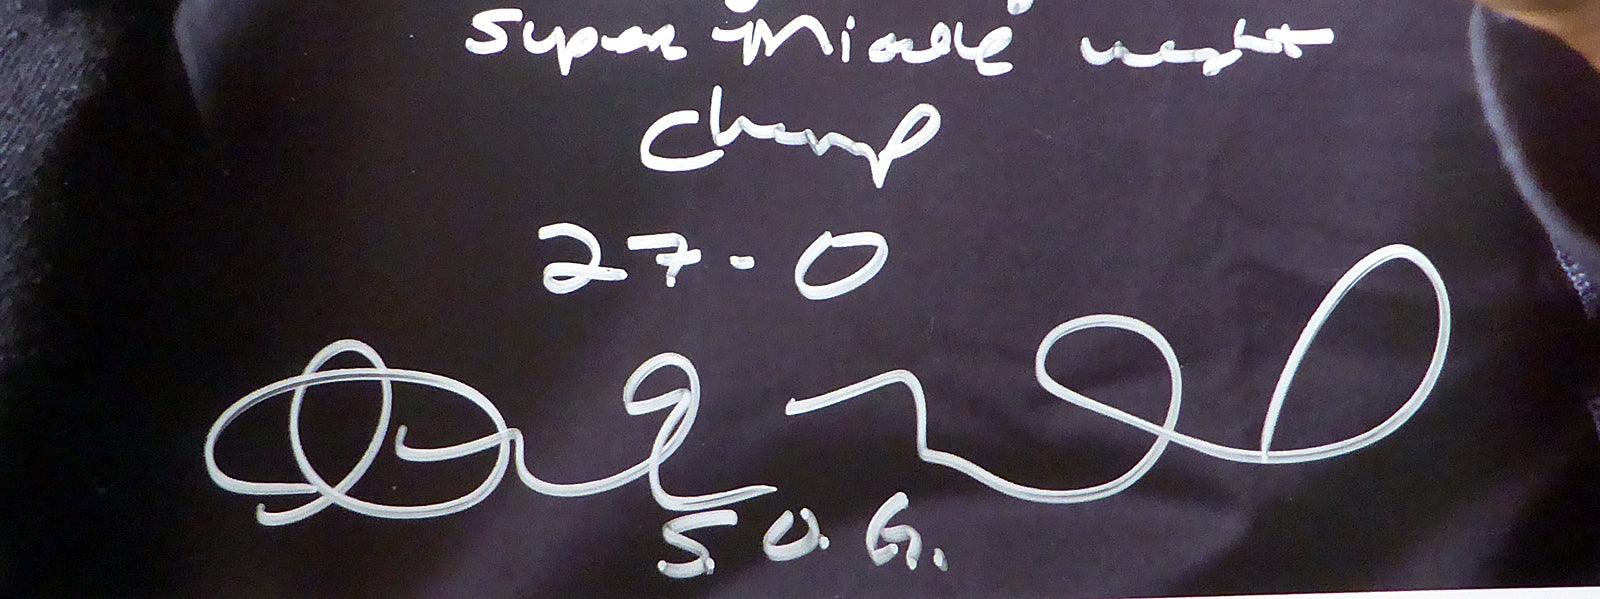 Super Middle weight
Champ
27-0
S.O.G.